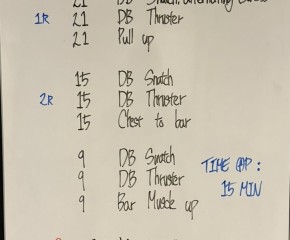 21 DB Snatch, alternating
1R 21 DB Thruster
21 Pull up
15 DB Snatch
2R 15 DB Thruster
15 Chest to bar
9 DB Snatch
9 DB Thruster
9 Bar Muscle up
TIME CAP:
15 MIN